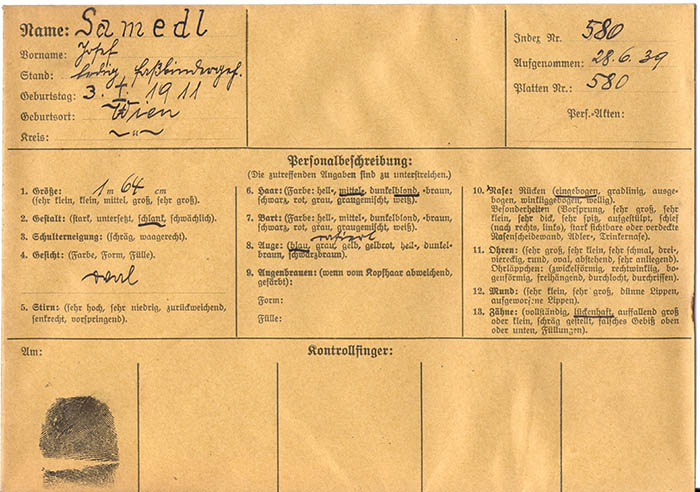 Name: Samedl
Vorname: Josef
Stand: ledig, Faßbindergeh.
Geburtstag: 3. 1911
Geburtsort: Wien
Kreis: — „ —
Index Nr. 580
Aufgenommen: 28.6.39
Platten Nr.: 580
Pers.-Akten:
Personalbeschreibung:
(Die zutreffenden Angaben sind zu unterstreichen.)
1. Größe: 1 m 64 cm
(sehr klein, klein, mittel, groß, sehr groß).
2. Gestalt: (stark, untersetzt, schlank, schwächlich).
3. Schulterneigung: (schräg, waagerecht).
4. Gesicht: (Farbe, Form, Fülle).
oval
5. Stirn: (sehr hoch, sehr niedrig, zurückweichend,
senkrecht, vorspringend).
6. Haar: (Farbe: hell-, mittel-, dunkelblond, -braun,
schwarz, rot, grau, graugemischt, weiß).
7. Bart: (Farbe: hell-, mittel-, dunkelblond, -braun,
schwarz, rot, grau, graugemischt, weiß).
8. Auge: (blau, grau, gelb, gelbrot, hell-, dunkel-
braun, schwarzbraun).
9. Augenbrauen: (wenn vom Kopfhaar abweichend,
gefärbt):
Form:
Fülle:
10. Nase: Rücken (eingebogen, gradlinig, ausge-
bogen, winkliggebogen, wellig).
Besonderheiten (Vorsprung, sehr groß, sehr
klein, sehr dick, sehr spitz, aufgestülpt, schief
(nach rechts, links), stark sichtbare oder verdeckte
Nasenscheidewand, Adler-, Trinkernase).
11. Ohren: (sehr groß, sehr klein, sehr schmal, drei-,
viereckig, rund, oval, abstehend, sehr anliegend).
Ohrläppchen: (zwickelförmig, rechtwinklig, bo-
genförmig, freihängend, durchlocht, durchrissen).
12. Mund: (sehr klein, sehr groß, dünne Lippen,
aufgeworfene Lippen).
13. Zähne: (vollständig, lückenhaft, auffallend groß
oder klein, schräg gestellt, falsches Gebiß oben
oder unten, Füllungen).
Am:
Kontrollfinger: